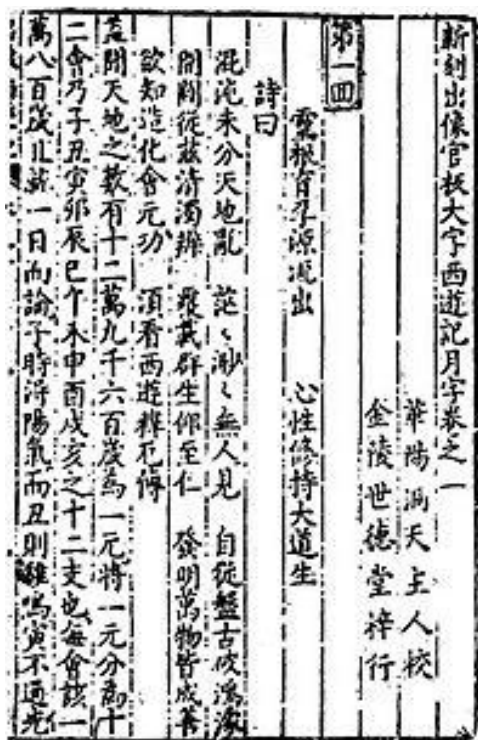 新刻出像官板大字西遊記月字卷之一
華陽洞天主人校
金陵世德堂梓行
第一回
靈根育孕源流出 心性修持大道生
詩曰
混沌未分天地亂 茫〻渺〻無人見 自從盤古破鴻濛
開闢從茲清濁辨 覆載群生仰至仁 發明萬物皆成善
欲知造化會元功 須看西遊釋厄傳
蓋聞天地之數有十二萬九千六百歲為一元將一元分為十
二會乃子丑寅卯辰巳午未申酉戌亥之十二支也每會該一
萬八百歲且就一日而論子時得陽氣而丑則雞鳴寅不通光